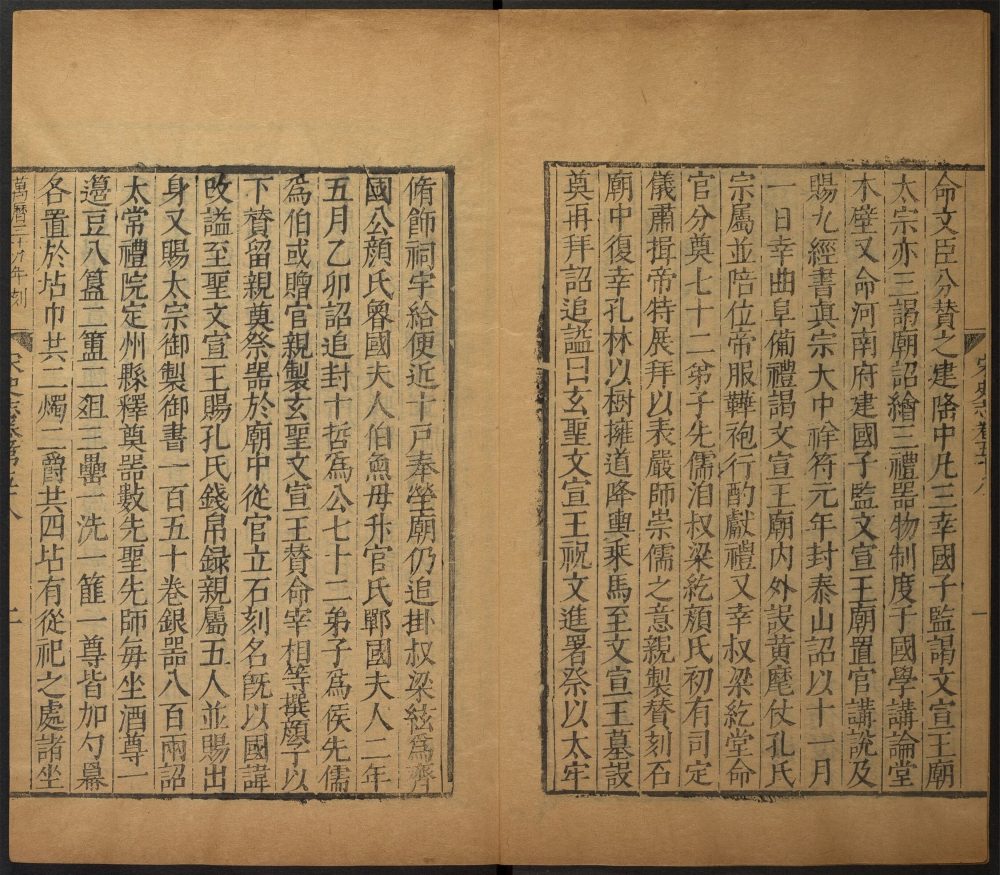 命文臣分賛之建隆中凡三幸國子監謁文宣王廟
太宗亦三謁廟詔繪三禮器物制度于國學講論堂
木壁又命河南府建國子監文宣王廟置官講說及
賜九經書真宗大中祥符元年封泰山詔以十一月
一日幸曲阜備禮謁文宣王廟內外設黃麾仗孔氏
宗屬並陪位帝服鞾袍行酌獻禮又幸叔梁紇堂命
官分奠七十二弟子先儒洎叔梁紇顔氏初有司定
儀肅揖帝特展拜以表嚴師崇儒之意親製賛刻石
廟中復幸孔林以樹擁道降輿乘馬至文宣王墓設
奠再拜詔追謚曰玄聖文宣王祝文進署祭以太牢
宋史志卷五十八 一
脩飾祠宇給便近十戸奉塋廟仍追掛叔梁紇爲齊
國公顔氏魯國夫人伯魚母幷官氏鄆國夫人二年
五月乙卯詔追封十哲爲公七十二弟子爲侯先儒
爲伯或贈官親製玄聖文宣王賛命宰相等撰顔子以
下賛留親奠祭器於廟中從官立石刻名旣以國諱
改謚至聖文宣王賜孔氏錢帛録親屬五人並賜出
身又賜太宗御製御書一百五十卷銀器八百兩詔
太常禮院定州縣釋奠器數先聖先師每坐酒尊一
籩豆八簋二簠二爼三罍一洗一篚一尊皆加勺羃
各置於坫巾共二燭二爵共四坫有從祀之處諸坐
萬曆二十九年刻 宋史志卷第五十八 二